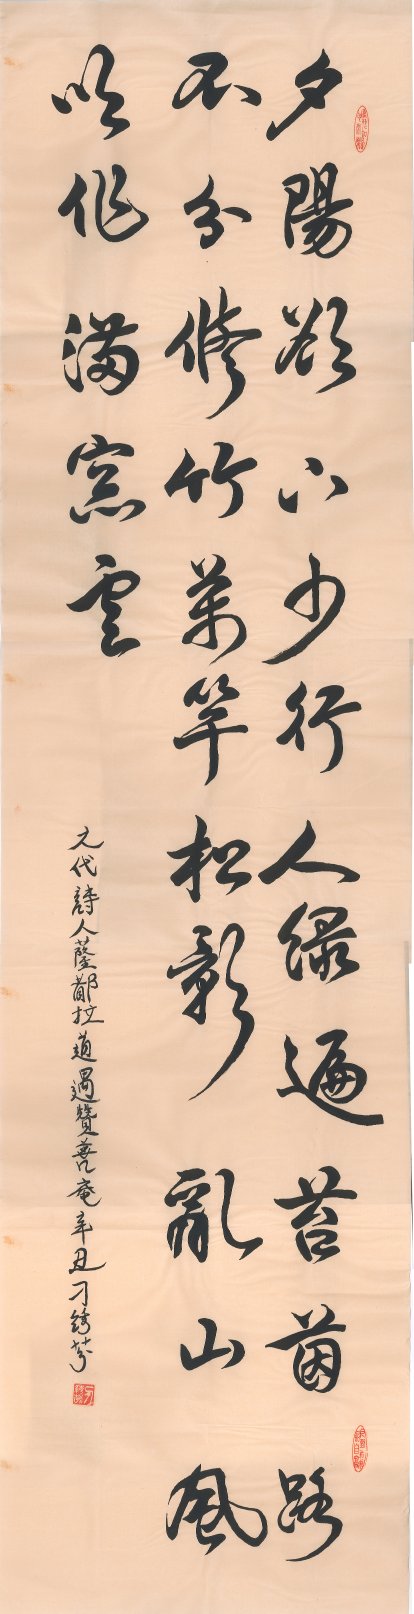 夕陽欲下少行人綠遍苔茵路
不分修竹萬竿松影亂山風
吹作滿窓雲
元代詩人薩都拉道過贊善庵辛丑刁